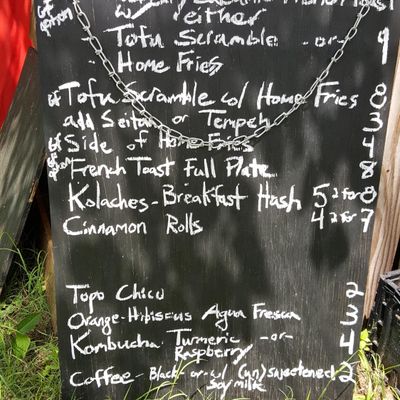 French Toast
w/ either
Tofu Scramble -or- 9
Home Fries
gf Tofu Scramble w/ Home Fries 8
add Seitan or Tempeh 3
gf Side of Home Fries 4
gf option French Toast Full Plate 8
Kolaches - Breakfast Hash 5 2 for 8
Cinnamon Rolls 4 2 for 7
Topo Chico 2
Orange-Hibiscus Agua Fresca 3
Kombucha Turmeric -or- 4
Raspberry
Coffee - Black -or- w/ (un)sweetened 2
Soymilk